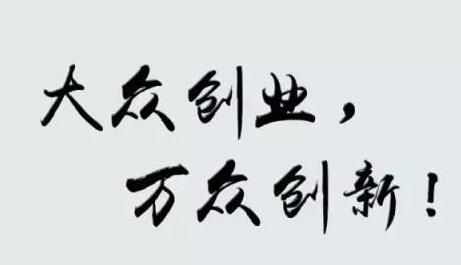 大众创业，
万众创新！